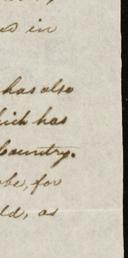 in
has also
which has
Country.
be, for
ld, as